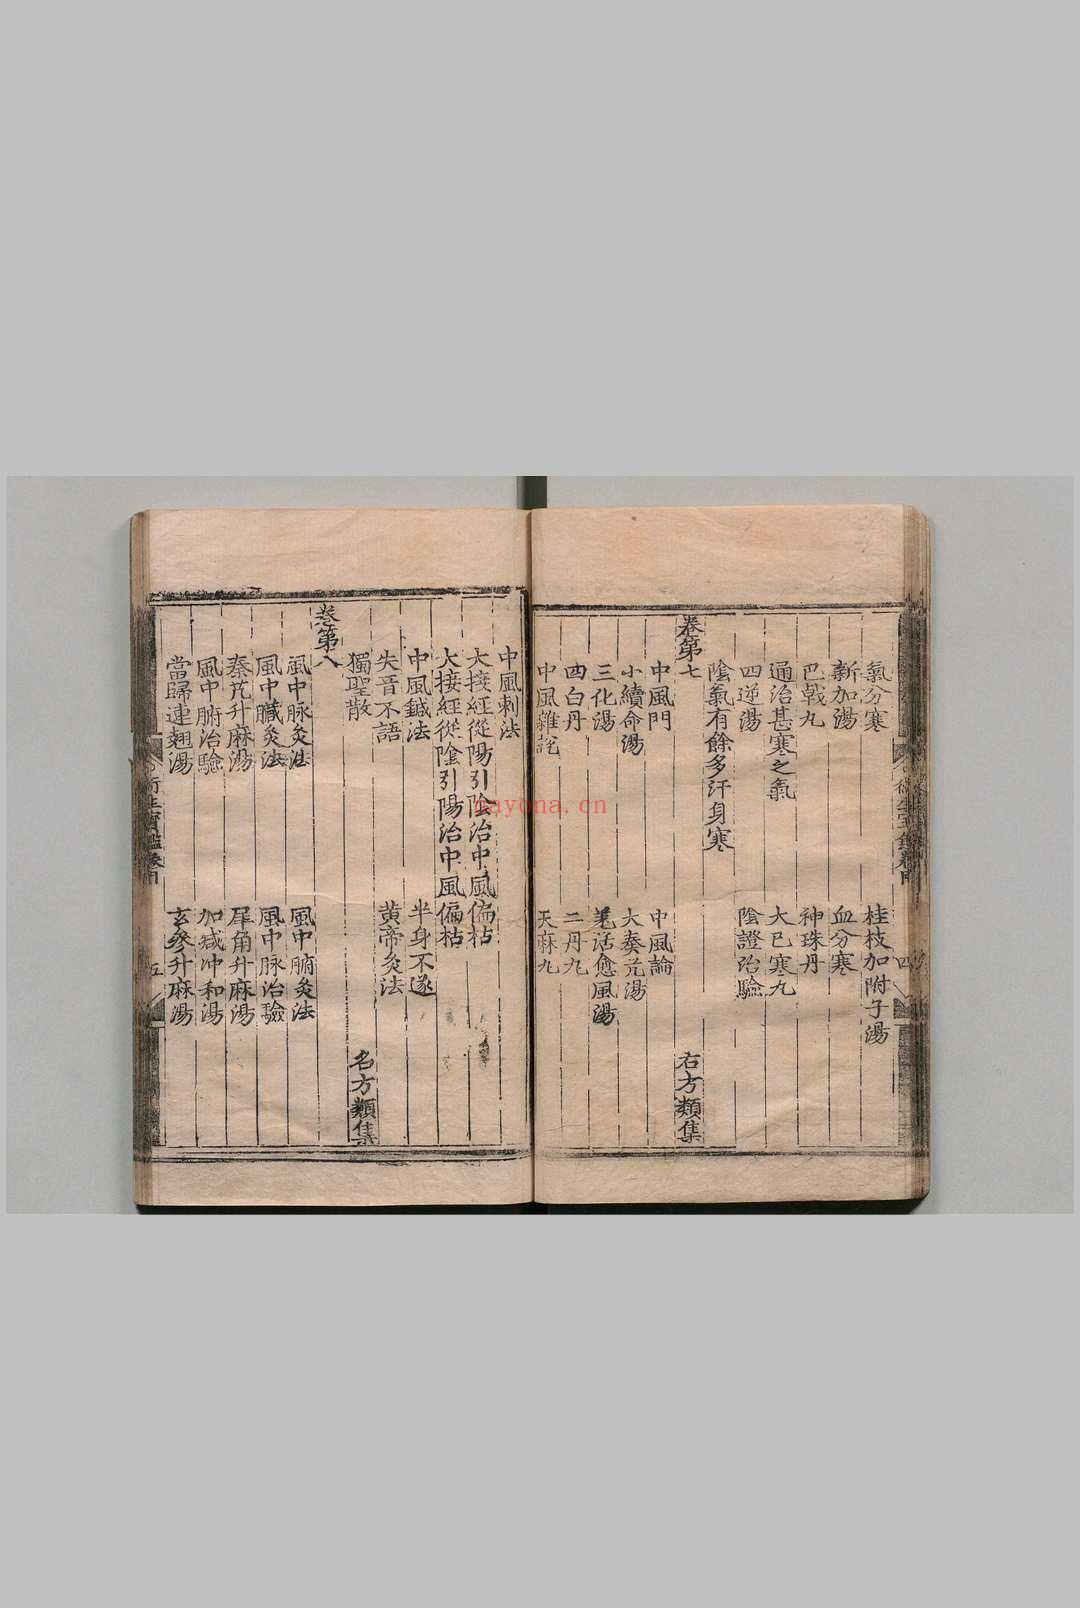 氣分寒 桂枝加附子湯
新加湯 血分寒
巴戟丸 神珠丹
通治甚寒之氣 大巳寒丸
四逆湯 陰證治驗
陰氣有餘多汗身寒
卷第七 右方類集
中風門 中風論
小續命湯 大秦艽湯
三化湯 羗活愈風湯
四白丹 二丹丸
中風雜說 天麻丸
中風刺法
大接經從陽引陰治中風偏枯
大接經從陰引陽治中風偏枯
中風鍼法 半身不遂
失音不語 黃帝灸法
獨聖散
卷第八 名方類集
風中脉灸法 風中腑灸法
風中臟灸法 風中脉治驗
秦艽升麻湯 犀角升麻湯
風中腑治驗 加减冲和湯
當歸連翹湯 玄參升麻湯
衛生寶鑑卷 五
四
nayona.cn